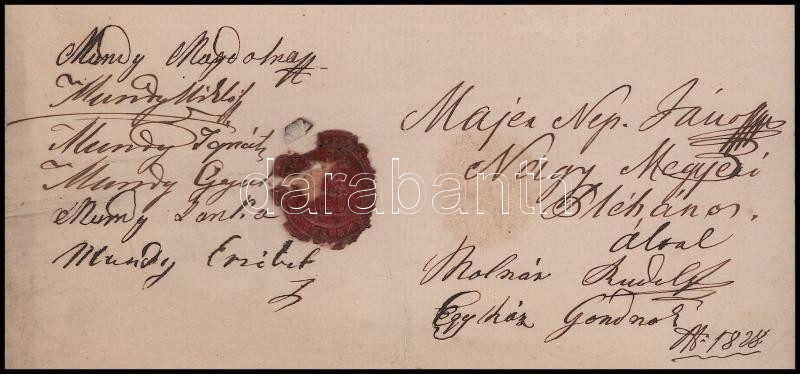 Mundy Magdolna
Mundy Miklós
Mundy Ignátz
Mundy
Mundy
Mundy Erzébet
Majer Nep. János
Nagy Megyeri
Pléhános.
által
Molnár Rudolf
Egyház Gondnok
darabanth